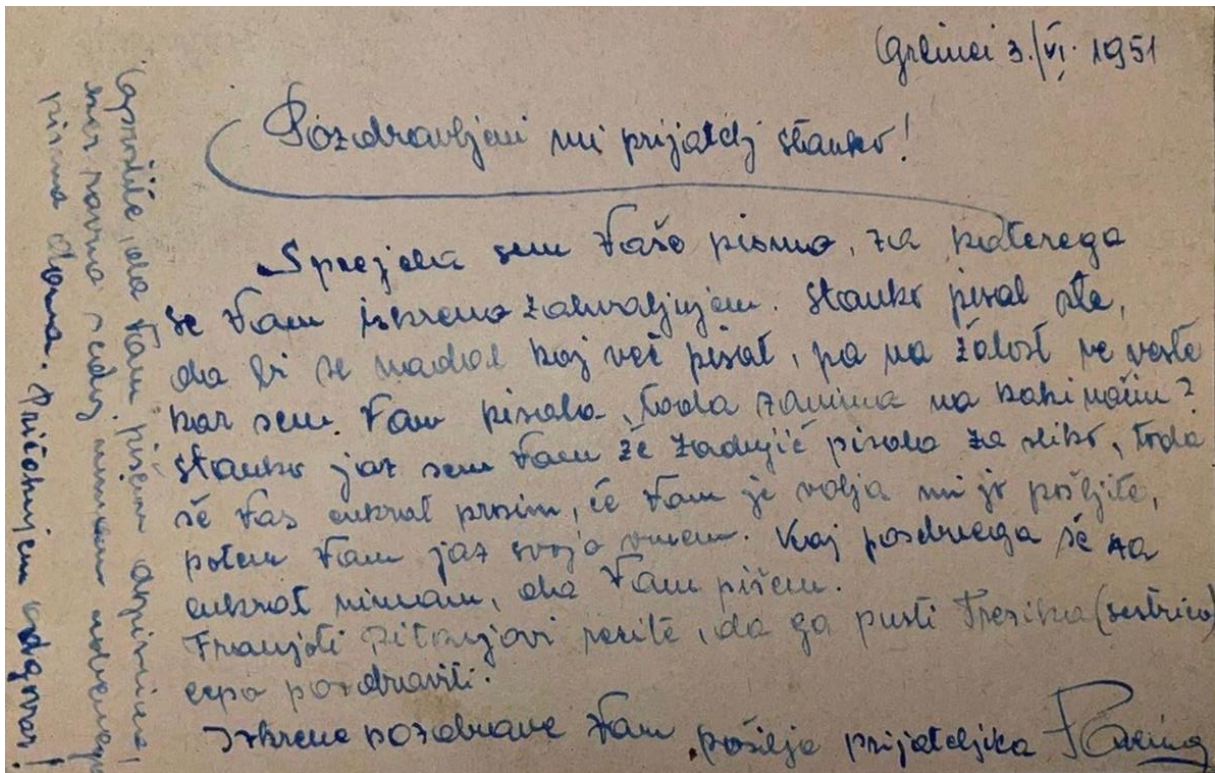 Grlinci 3./VI. 1951
Pozdravljeni mi prijatelj Stanko!
Sprejela sem Vaše pismo, za katerega
se Vam iskreno zahvaljujem. Stanko pisal ste,
da bi se nadal kaj več pisat, pa na žalost ne veste
kar sem Vam pisala, toda zanima na kaki način?
Stanko jaz sem Vam že zadnjič pisala za sliko, toda
še Vas enkrat prosim, če Vam je volja mi jo pošljite,
potem Vam jaz svojo vrnem. Kaj posebnega še za
enkrat nimam, da Vam pišem.
Franjoti recite, da ga pusti Trezika (sestrica)
lepo pozdraviti.
Iskrene pozdrave Vam pošilja prijateljica
Oprostite, da Vam pišem dopisnico!
ker ravno sedaj nimam nobenega
pisma doma. Pričakujem odgovor!